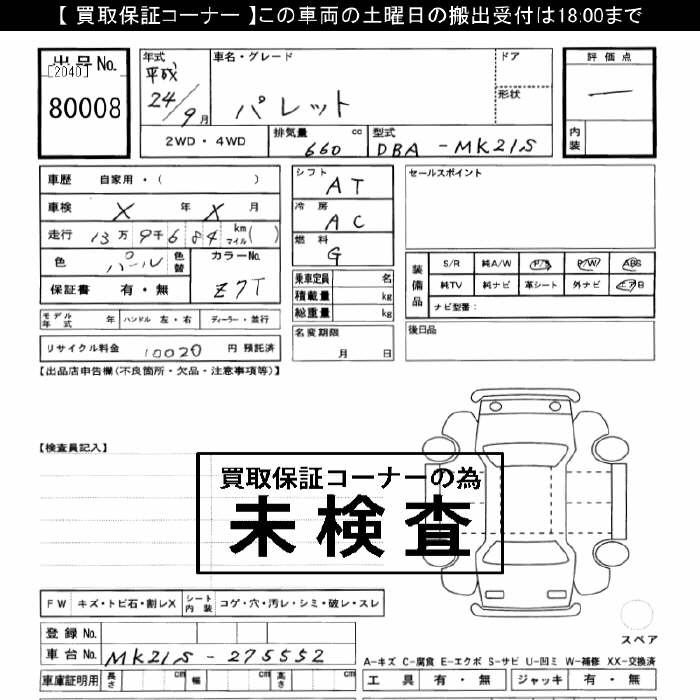 【 買取保証コーナー 】この車両の土曜日の搬出受付は18:00まで
出品No.
[2040]
80008
年式
平成
24/9月
車名・グレード
パレット
ドア
形状
評価点
一
内装
2WD・4WD
排気量 660 cc
型式 DBA-MK21S
車歴 自家用・( )
車検 X 年 X 月
走行 13万9千684 km マイル( )
色 パール 色替
カラーNo. Z7T
保証書 有・無
モデル年式 年 ハンドル 左・右 ディーラー・並行
リサイクル料金 10020 円 預託済
シフト AT
冷房 AC
燃料 G
乗車定員 名
積載量 kg
総重量 kg
名変期限
月 日
セールスポイント
装備品
S/R 純A/W P/S P/W ABS
純TV 純ナビ 革シート 外ナビ エアB
ナビ型番:
後日品
【出品店申告欄(不良箇所・欠品・注意事項等)】
【検査員記入】
買取保証コーナーの為
未検査
FW キズ・トビ石・割レX シート内装 コゲ・穴・汚レ・シミ・破レ・スレ
登録No.
車台No. MK21S-275552
車庫証明用 長さ cm 幅 cm 高さ cm
スペア
A-キズ C-腐食 E-エクボ S-サビ U-凹ミ W-補修 XX-交換済
工具 有・無 ジャッキ 有・無